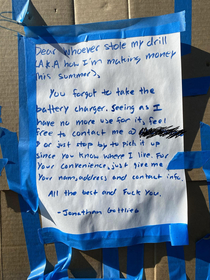 Dear whoever stole my drill
(A.K.A how I'm making money
this summer),
You forgot to take the
battery charger. Seeing as I
have no more use for it, feel
free to contact me @
or just stop by to pick it up
since you know where I live. For
Your convenience, just give me
Your name, address and contact info.
All the best and Fuck You,
- Jonathan Gottlieb